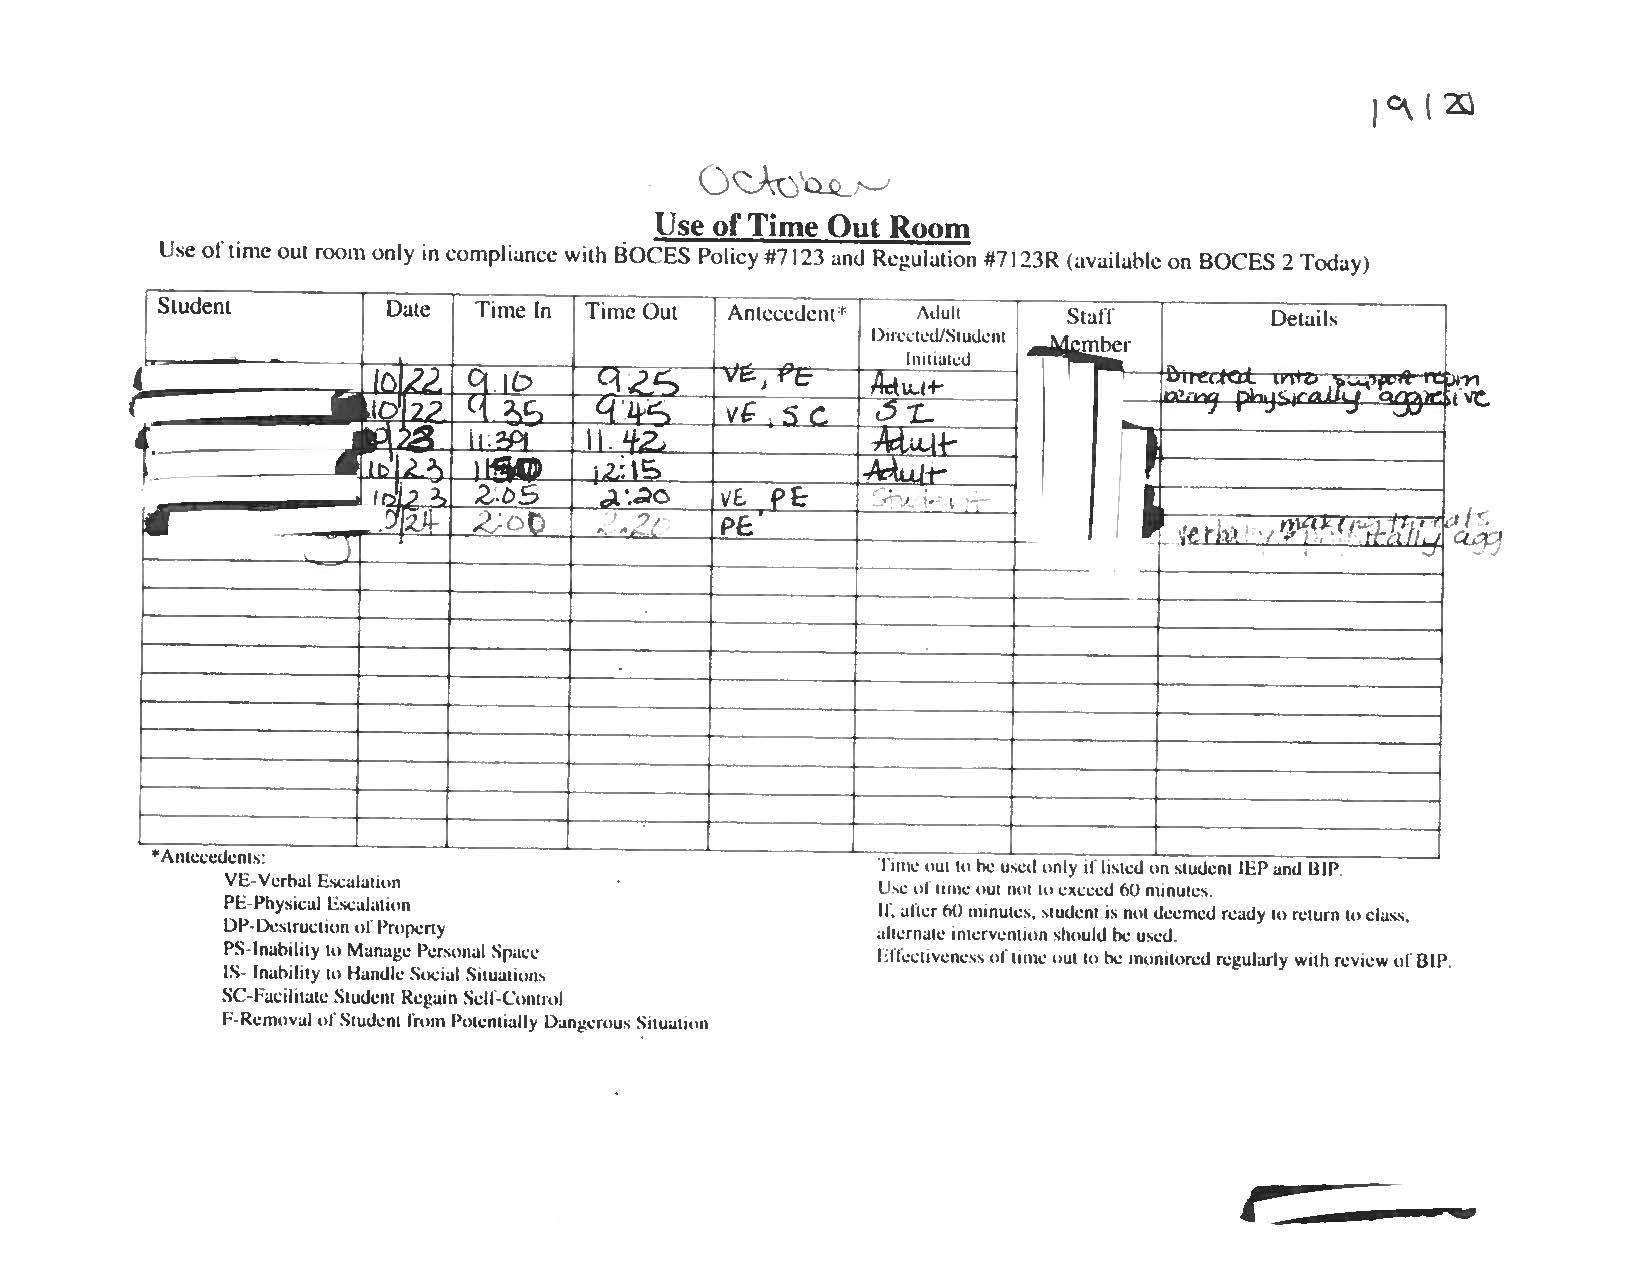 19/20
October
Use of Time Out Room
Use of time out room only in compliance with BOCES Policy #7123 and Regulation #7123R (available on BOCES 2 Today)
Student Date Time In Time Out Antecedent* Adult Directed/Student Initiated Staff Member Details
10/22 9.10 9.25 VE, PE Adult Directed into support room
10/22 9.35 9:45 VE, SC SI being physically aggresive
11:39 11.42 Adult
10/23 12:15 Adult
10/23 2:05 2:20 VE PE Student
24 2:00 2.20 PE making
agg
*Antecedents:
VE-Verbal Escalation
PE-Physical Escalation
DP-Destruction of Property
PS-Inability to Manage Personal Space
IS- Inability to Handle Social Situations
SC-Facilitate Student Regain Self-Control
F-Removal of Student from Potentially Dangerous Situation
Time out to be used only if listed on student IEP and BIP.
Use of time out not to exceed 60 minutes.
If, after 60 minutes, student is not deemed ready to return to class,
alternate intervention should be used.
Effectiveness of time out to be monitored regularly with review of BIP.